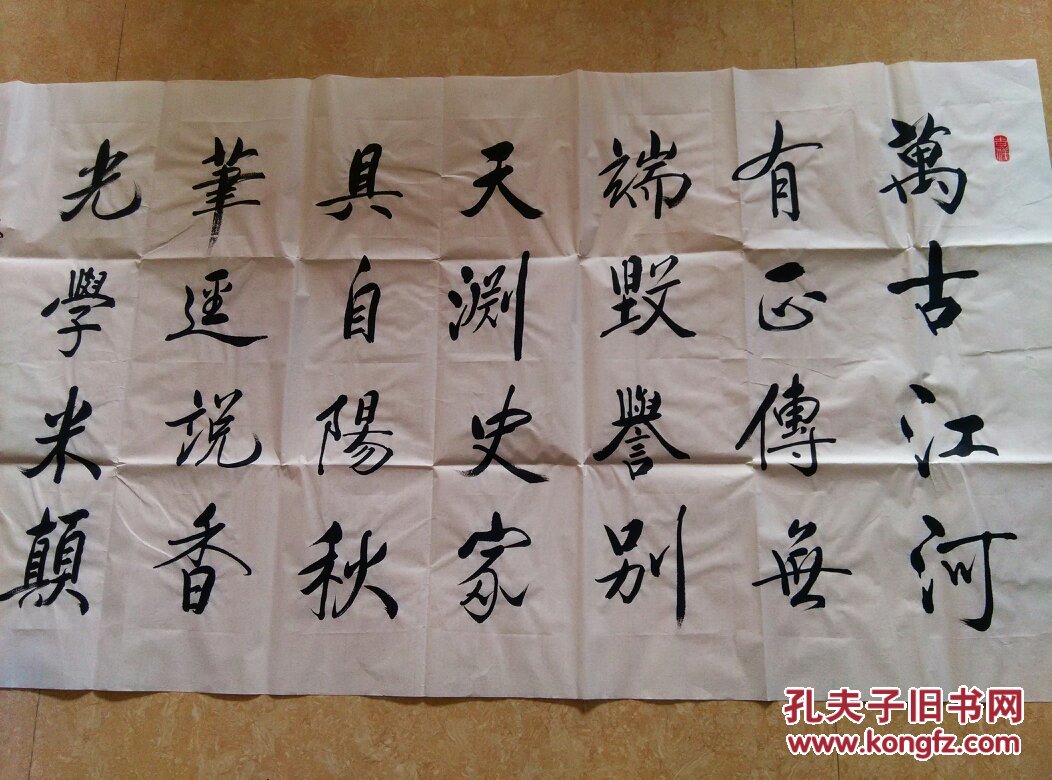 萬古江河
有正傳無
端毀譽別
天淵史家
具自陽秋
筆逕說香
光學米顛
孔夫子旧书网
www.kongfz.com